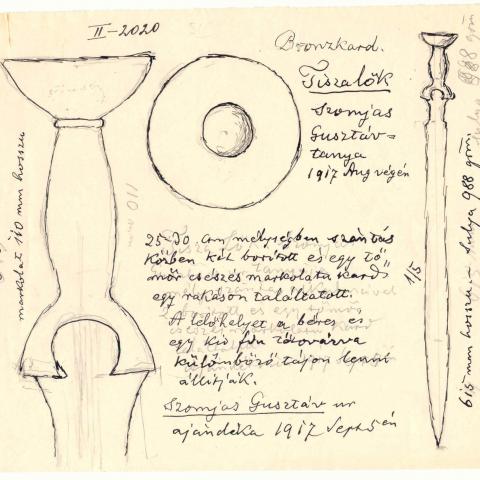 II-2020
Bronzkard.
Tiszalök
Szomjas
Gusztáv=
tanya
1917 Aug végén
markolat 110 mm hosszu
110 mm
25-30 cm mélységben szántás
közben két borított és egy tö=
mör csészés markolatu kard
egy rakáson találtatott.
A lelőhelyet a béres és
egy kis fiu tétovázva
külömböző tájon lenni
állítják.
Szomjas Gusztáv ur
ajándéka 1917 Sept 5 én
1/5
615 mm hosszu — sulya 988 gm.